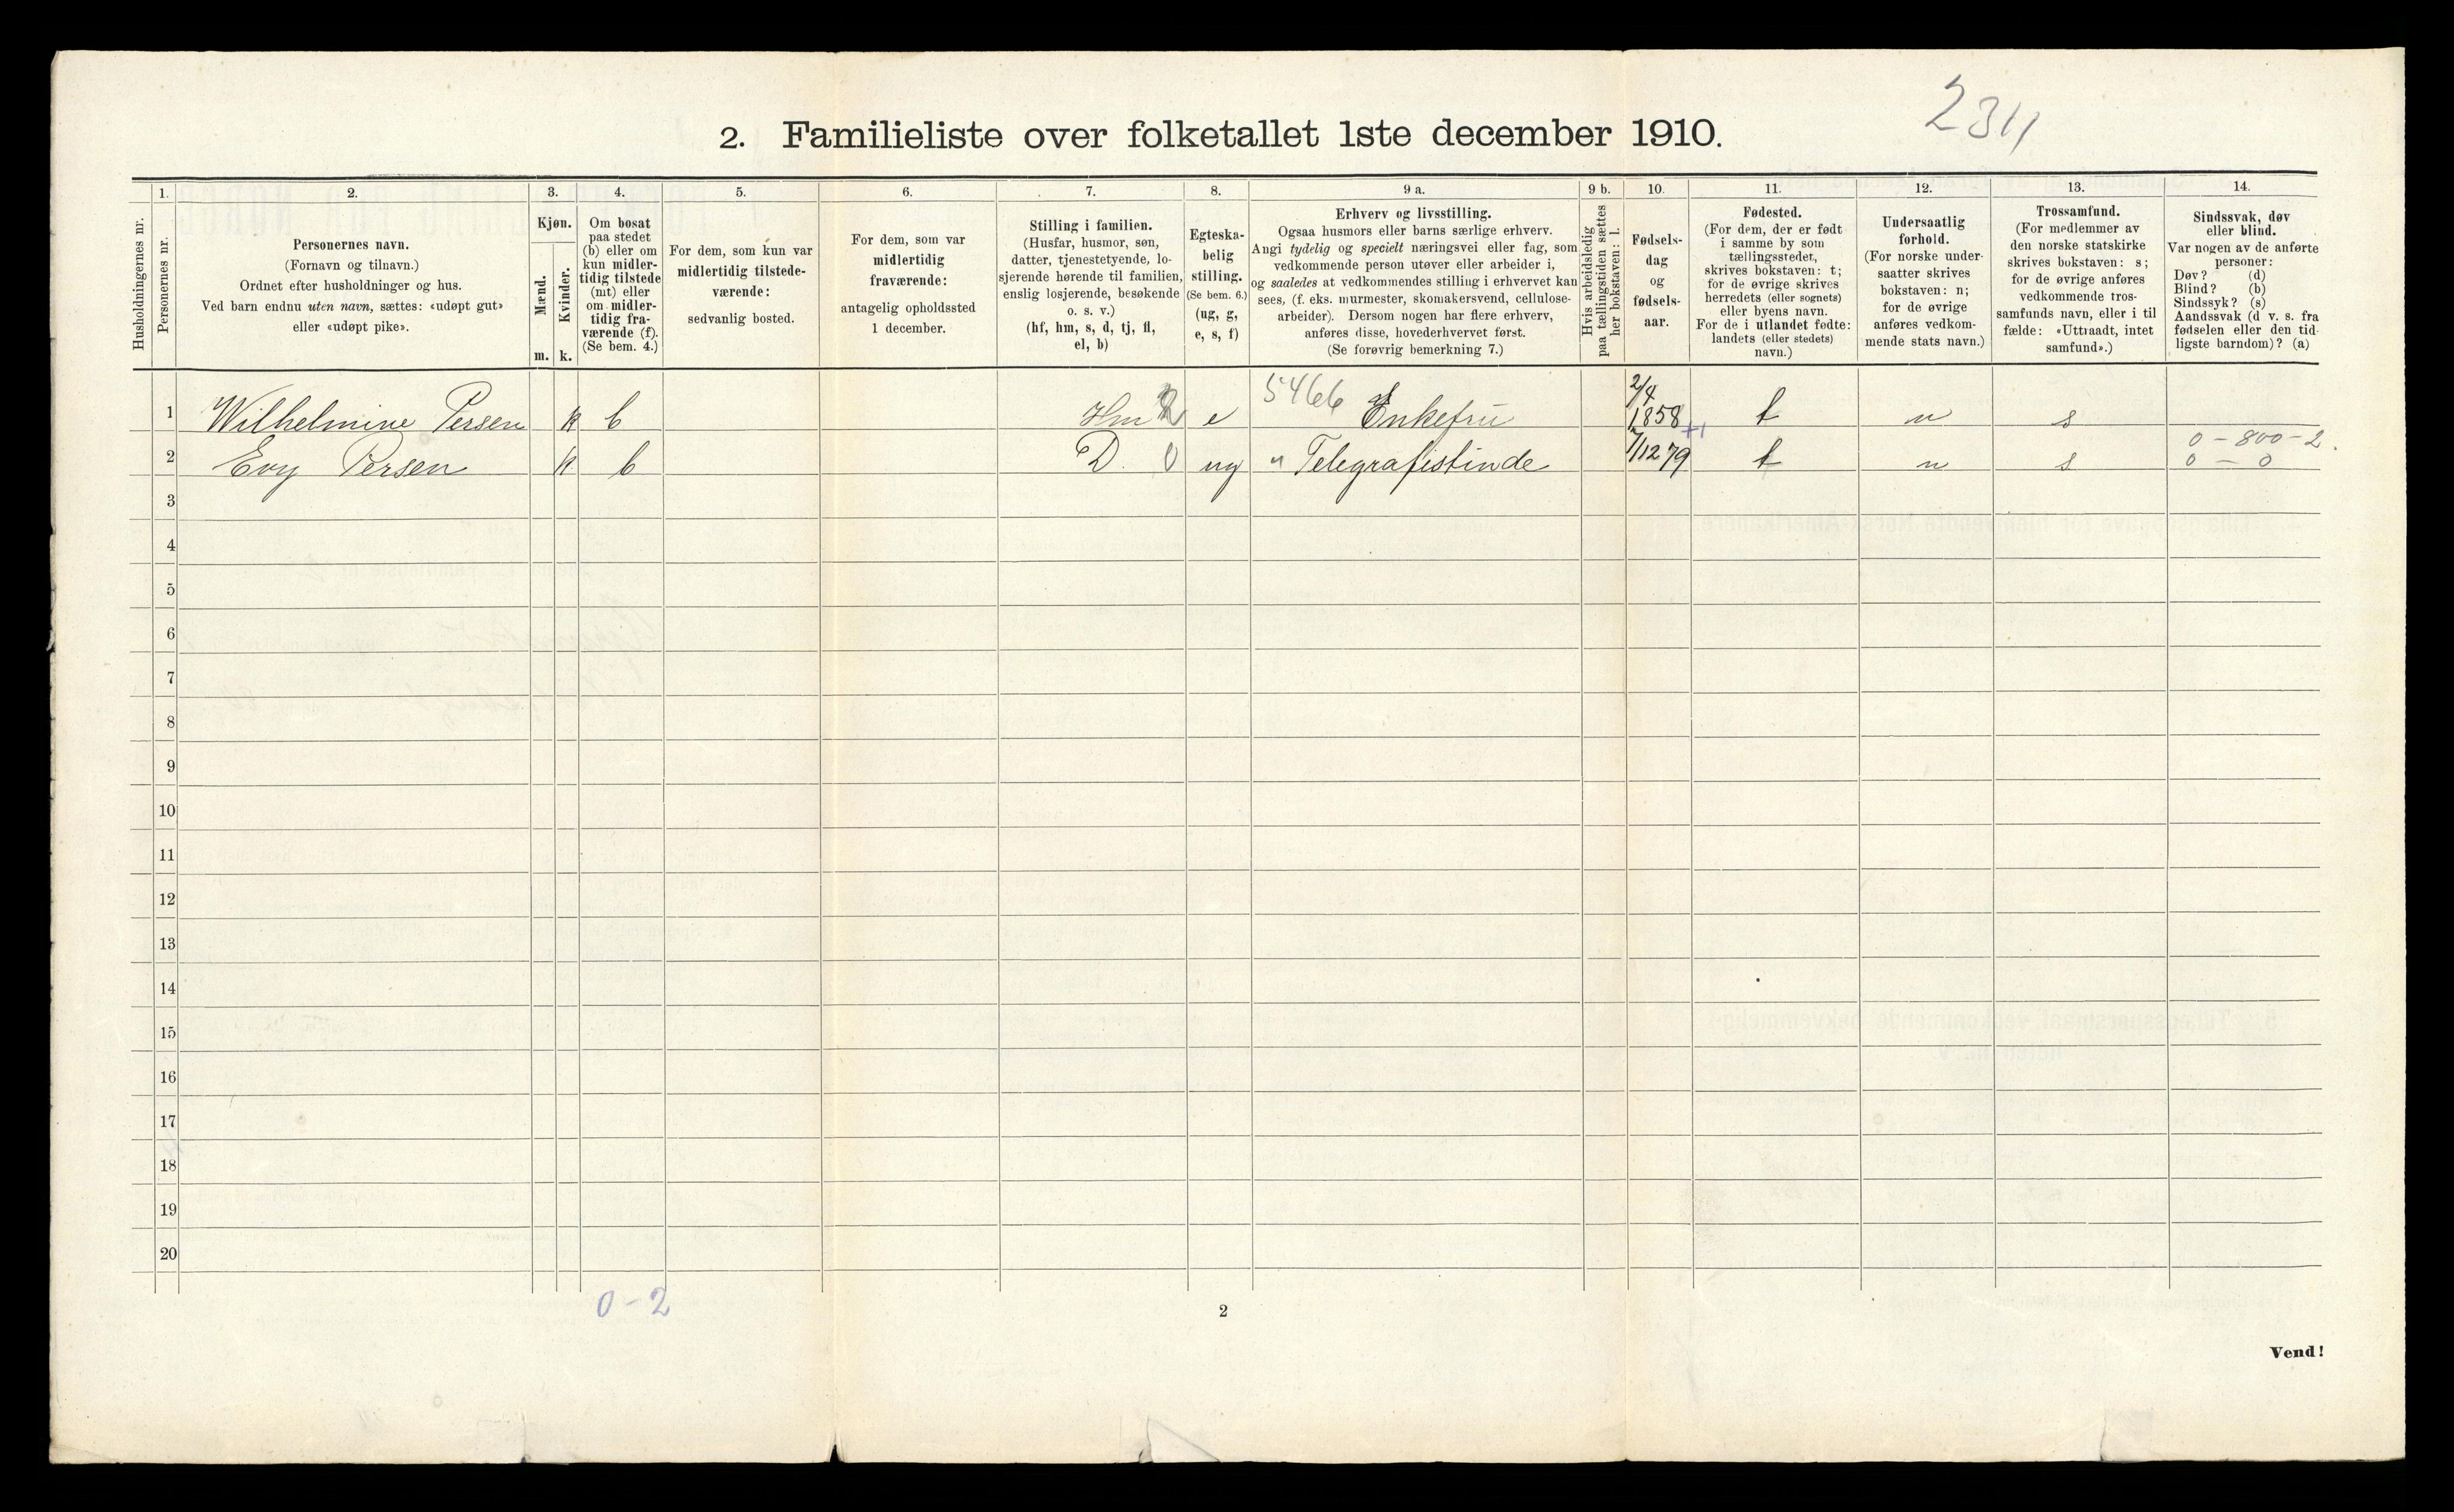 2311
2. Familieliste over folketallet 1ste december 1910.
Husholdningernes nr.
1.
Personernes nr.
2.
Personernes navn.
(Fornavn og tilnavn.)
Ordnet efter husholdninger og hus.
Ved barn endnu uten navn, sættes: «udøpt gut»
eller «udøpt pike».
3.
Kjøn.
Mænd.
Kvinder.
m. k.
4.
Om bosat
paa stedet
(b) eller om
kun midler-
tidig tilstede
(mt) eller
om midler-
tidig fra-
værende (f).
(Se bem. 4.)
5.
For dem, som kun var
midlertidig tilstede-
værende:
sedvanlig bosted.
6.
For dem, som var
midlertidig
fraværende:
antagelig opholdssted
1 december.
7.
Stilling i familien.
(Husfar, husmor, søn,
datter, tjenestetyende, lo-
sjerende hørende til familien,
enslig losjerende, besøkende
o. s. v.)
(hf, hm, s, d, tj, fl,
el, b)
8.
Egteska-
belig
stilling.
(Se bem. 6.)
(ug, g,
e, s, f)
9 a.
Erhverv og livsstilling.
Ogsaa husmors eller barns særlige erhverv.
Angi tydelig og specielt næringsvei eller fag, som
vedkommende person utøver eller arbeider i,
og saaledes at vedkommendes stilling i erhvervet kan
sees, (f. eks. murmester, skomakersvend, cellulose-
arbeider). Dersom nogen har flere erhverv,
anføres disse, hovederhvervet først.
(Se forøvrig bemerkning 7.)
9 b.
Hvis arbeidsledig
paa tællingstiden sættes
her bokstaven: l.
10.
Fødsels-
dag
og
fødsels-
aar.
11.
Fødested.
(For dem, der er født
i samme by som
tællingsstedet,
skrives bokstaven: t;
for de øvrige skrives
herredets (eller sognets)
eller byens navn.
For de i utlandet fødte:
landets (eller stedets)
navn.)
12.
Undersaatlig
forhold.
(For norske under-
saatter skrives
bokstaven: n;
for de øvrige
anføres vedkom-
mende stats navn.)
13.
Trossamfund.
(For medlemmer av
den norske statskirke
skrives bokstaven: s;
for de øvrige anføres
vedkommende tros-
samfunds navn, eller i til
fælde: «Uttraadt, intet
samfund».)
14.
Sindssvak, døv
eller blind.
Var nogen av de anførte
personer:
Døv? (d)
Blind? (b)
Sindssyk? (s)
Aandssvak (d v. s. fra
fødselen eller den tid-
ligste barndom)? (a)
1 Wilhelmine Persen k b Hm e 5466 Enkefru 2/4 1858 t n s
+1 0-800-2
2 Evy Persen k b D. 0 ug " Telegrafistinde 7/12 79 t n s 0-0
3
4
5
6
7
8
9
10
11
12
13
14
15
16
17
18
19
20
0-2
2
Vend!